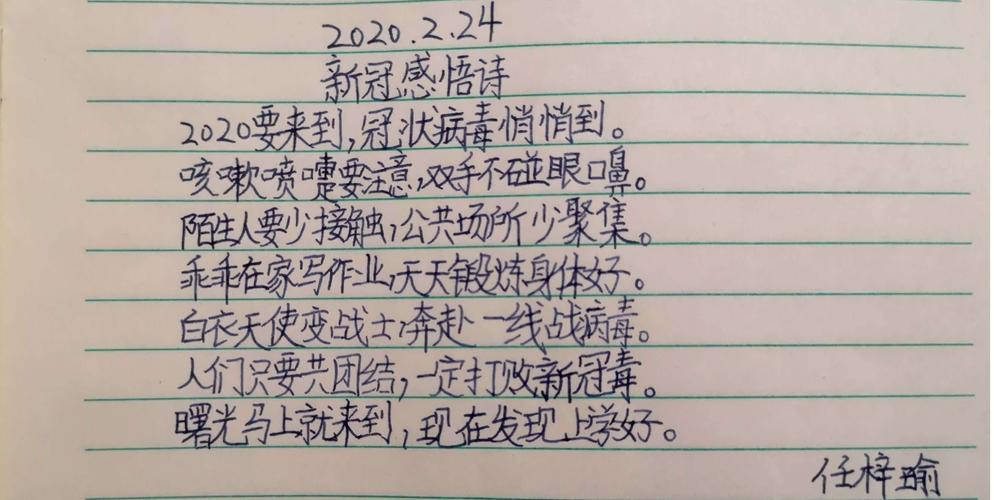 2020.2.24
新冠感悟诗
2020要来到,冠状病毒悄悄到。
咳嗽喷嚏要注意,双手不碰眼口鼻。
陌生人要少接触,公共场所少聚集。
乖乖在家写作业,天天锻炼身体好。
白衣天使变战士,奔赴一线战病毒。
人们只要共团结,一定打败新冠毒。
曙光马上就来到,现在发现上学好。
任梓瑜